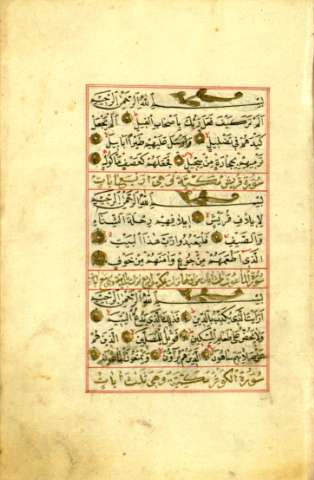 بسم الله الرحمن الرحيم
الم تر كيف فعل ربك باصحاب الفيل الم يجعل
كيدهم في تضليل وارسل عليهم طيرا ابابيل
ترميهم بحجارة من سجيل فجعلهم كعصف ماكول
سورة قريش مكية وهي اربع ايات
بسم الله الرحمن الرحيم
لايلاف قريش ايلافهم رحلة الشتاء
والصيف فليعبدوا رب هذا البيت
الذي اطعمهم من جوع وامنهم من خوف
سورة الماعون
بسم الله الرحمن الرحيم
ارايت الذي يكذب بالدين فذلك الذي يدع اليتيم
ولا يحض على طعام المسكين فويل للمصلين الذين هم
عن صلاتهم ساهون الذين هم يراؤن ويمنعون الماعون
سورة الكوثر مكية وهي ثلث ايات